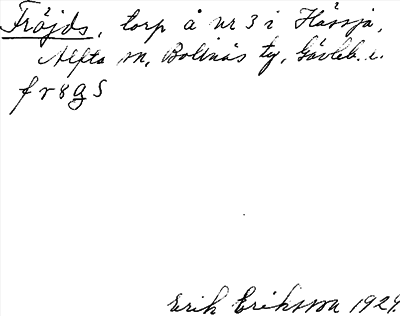 Fröjds, torp å nr 3 i Hässja,
Alfta sn, Bollnäs tg, Gävleb. l.
frögs
Erik Eriksson 1924.